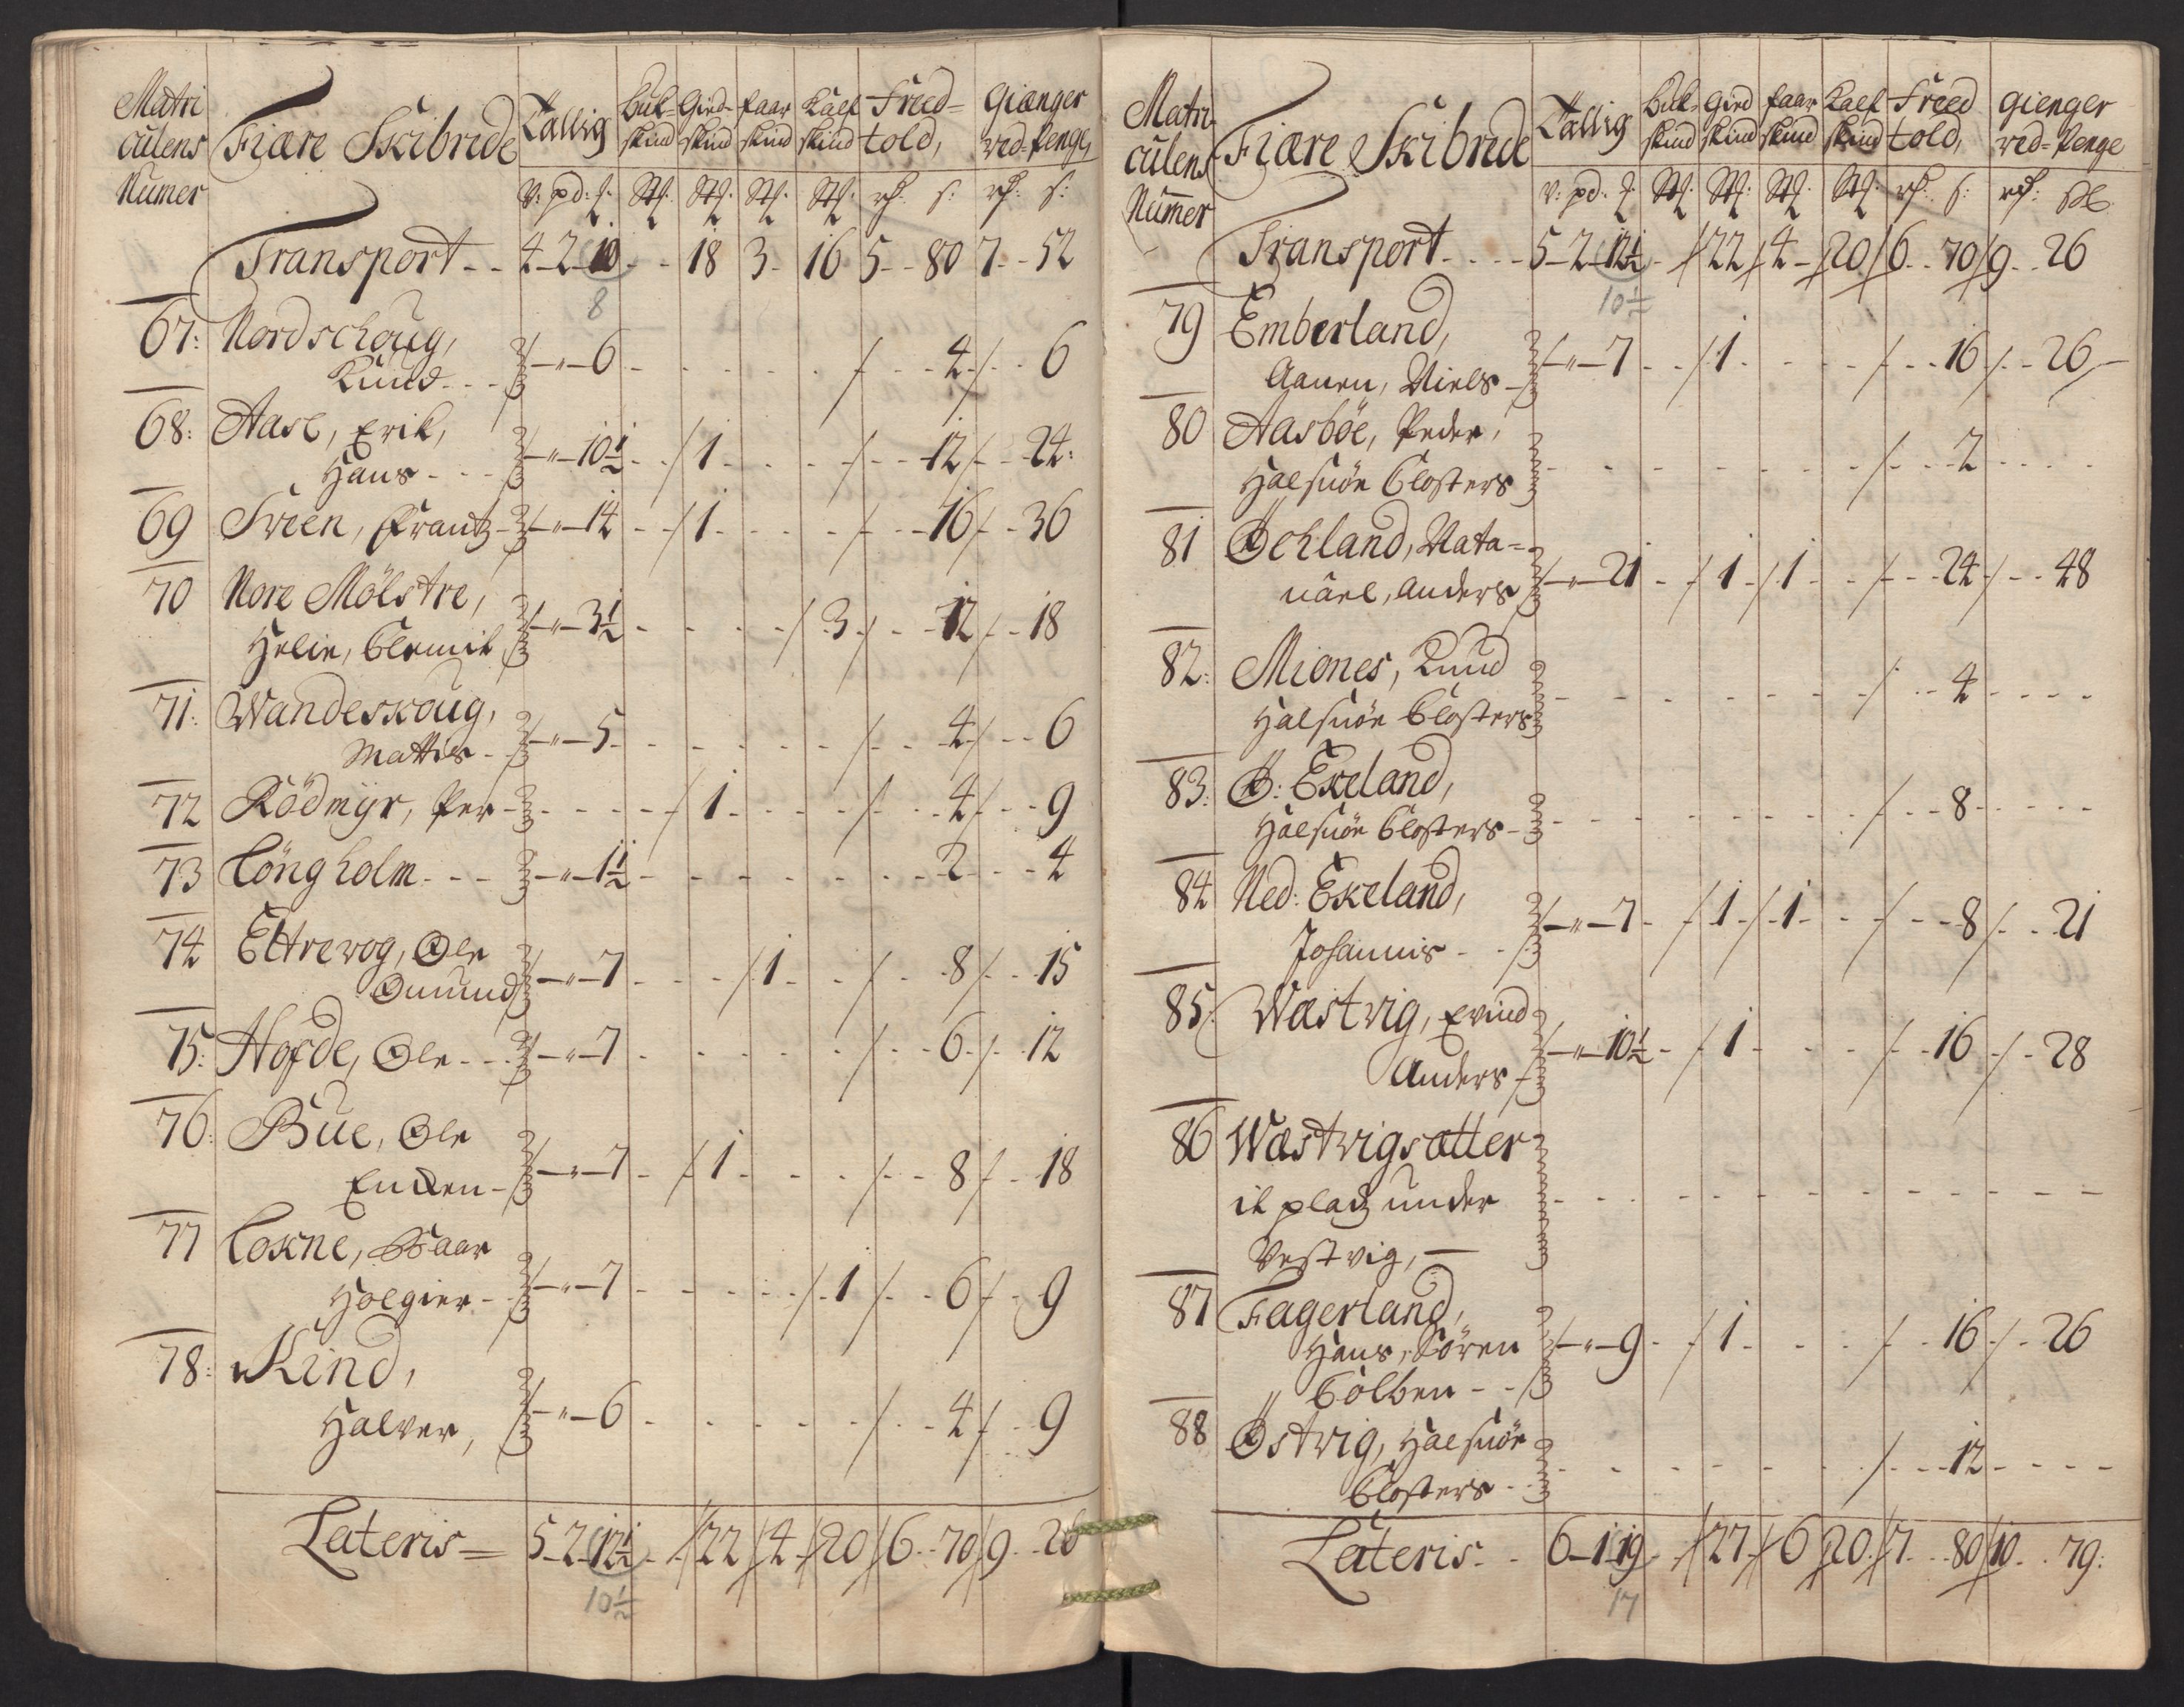 Matri
culens
Numer
Fiære Skibrede
Tallig
Buk-
skind
Gied-
skind
faar
skind
Kalf
skind
Freed-
told,
Gienger
ved-Penge,
v: pd: Stk: Stk: Stk: Stk: s: s:
Transport - - 4-2-10 - - 18 3 - 16 5 - - 80 7 - - 52
8
67: Nordschoug,
Knud - - - - " - 6 - - - - - - 4 - - 6
68: Aase, Erik,
Hans - - - - " - 10½ - - 1 - - - - - 12 - - 24:
69 Sveen, Frantz - - " - 14 - - 1 - - - - - 16 - - 36
70 Nore Mölstre,
Helie, Clemit - " - 3½ - - - - 3 - - 12 - - 18
71: Wandeskoug,
Mattis - - " - 5 - - - - - - - 4 - - - 6
72 Rödmyr, Per - - - - - - 1 - - - - - - 4 - - - 9
73 Longholm - - - - " - 1½ - - - - - - - - 2 - - - 4
74 Eltrevog, Ole
Omund - " - 7 - - - 1 - - - - - 8 - - - 15
75: Hofde, Ole - - - - " - 7 - - - - - - - - 6 - - 12
76: Bue, Ole
Enden - - " - 7 - - 1 - - - - - - 8 - - 18
77 Loxne, Baar
Holgier - - " - 7 - - - - - 1 - - 6 - - 9
78: Kind,
Halver, - " - 6 - - - - - - - - 4 - - 9
Lateris = 5-2-12½ - - 22 4 - 20 6 - - 70 9 - - 26
10½
Matri
culens
Numer
Fiære Skibrede
Tallig
Buk-
skind
Gied
skind
faar
skind
Kalf
skind
Freed
told,
gienger
ved-Penge
v: pd: Stk: Stk: Stk: Stk: s: sk
Transport - - - - 5-2-12½ - 22 4 - 20 6 - - 70 9 - - 26
10½
79 Emberland,
Aanen, Niels - - " - 7 - - 1 - - - - - - - 16 - - 26 -
80 Aasböe, Peder,
Halsnöe Closters - - - - - - - - - 2 - - - -
81 Öehland, Nata-
nael, Anders - " - 21 - - 1 - 1 - - - - 24 - - - 48
82: Miones, Knud
Halsnöe Closters - - - - - - - - - - 4 - - - -
83: Ö: Exeland,
Halsnöe Closters - - - - - - - - - - - 8 - - - - -
84 Ned: Exeland,
Johannis - - - " - 7 - - 1 - 1 - - - - - 8 - - - 21
85: Wæstvig, Evind
Anders - - " - 10½ - - 1 - - - - - 16 - - 28
86 Wæstvigsætter
it pladz under
Vestvig, - - - - - - - - - - - - -
87 Fagerland,
Hans, Sören
Colben - - - " - 9 - - 1 - - - - - - 16 - - 26
88 Östvig, Halsnöe
Closters - - - - - - - - - - - 12 - - - -
Lateris - - 6-1-19 - - 27 - 6 20 7 - - 80 10 - - 79:
17